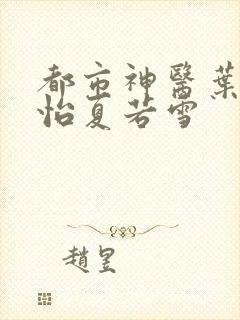 都市神醫葉
怡夏若雪
趙昱